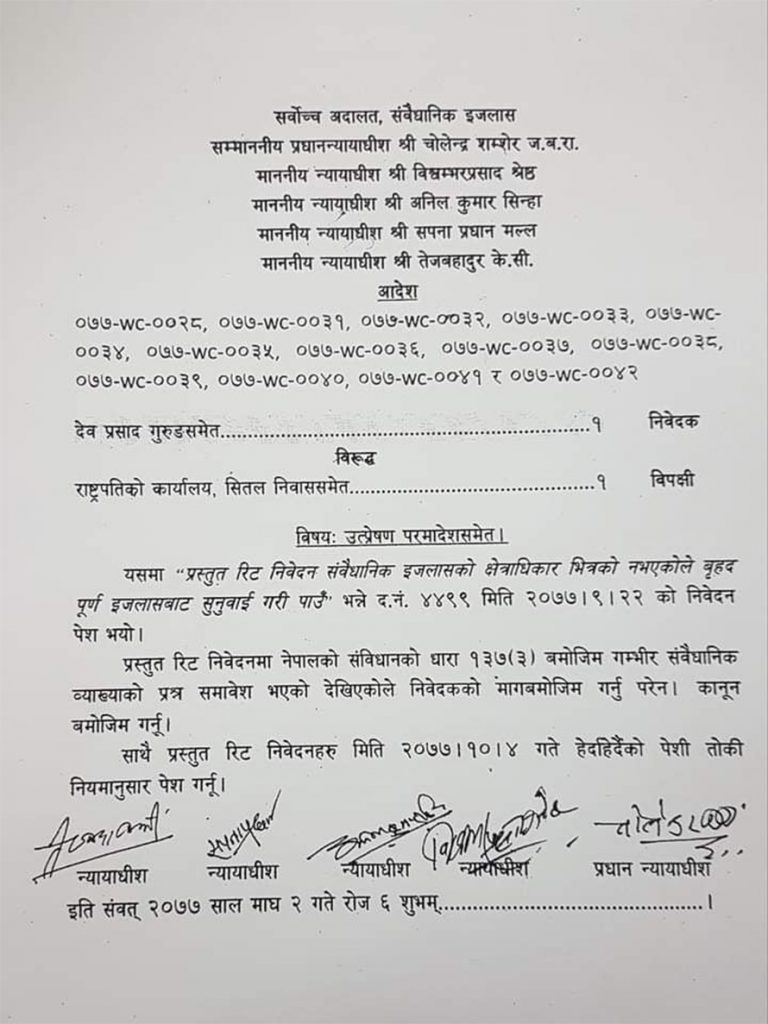 सर्वोच्च अदालत, संवैधानिक इजलास
सम्माननीय प्रधानन्यायाधीश श्री चोलेन्द्र शम्शेर ज.ब.रा.
माननीय न्यायाधीश श्री विश्वम्भरप्रसाद श्रेष्ठ
माननीय न्यायाधीश श्री अनिल कुमार सिन्हा
माननीय न्यायाधीश श्री सपना प्रधान मल्ल
माननीय न्यायाधीश श्री तेजबहादुर के.सी.
आदेश
०७७-WC-००२८, ०७७-WC-००३१, ०७७-WC-००३२, ०७७-WC-००३३, ०७७-WC-
००३४, ०७७-WC-००३५, ०७७-WC-००३६, ०७७-WC-००३७, ०७७-WC-००३८,
०७७-WC-००३९, ०७७-WC-००४०, ०७७-WC-००४१ र ०७७-WC-००४२
देव प्रसाद गुरुङसमेत.................................................................१ निवेदक
विरूद्ध
राष्ट्रपतिको कार्यालय, सितल निवाससमेत...........................................१ विपक्षी
विषयः उत्प्रेषण परमादेशसमेत।
यसमा "प्रस्तुत रिट निवेदन संवैधानिक इजलासको क्षेत्राधिकार भित्रको नभएकोले बृहद
पूर्ण इजलासबाट सुनुवाई गरी पाउँ" भन्ने द.नं. ४४९९ मिति २०७७।९।२२ को निवेदन
पेश भयो।
प्रस्तुत रिट निवेदनमा नेपालको संविधानको धारा १३७(३) बमोजिम गम्भीर संवैधानिक
व्याख्याको प्रश्न समावेश भएको देखिएकोले निवेदकको मागबमोजिम गर्नु परेन। कानून
बमोजिम गर्नू।
साथै प्रस्तुत रिट निवेदनहरु मिति २०७७।१०।४ गते हेर्दाहेर्दैको पेशी तोकी
नियमानुसार पेश गर्नू।
न्यायाधीश न्यायाधीश न्यायाधीश न्यायाधीश प्रधान न्यायाधीश
इति संवत् २०७७ साल माघ २ गते रोज ६ शुभम्...............................................।